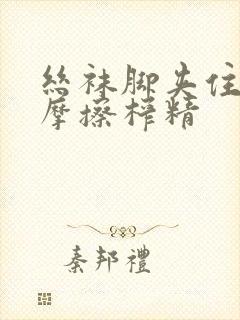 丝袜脚夹住
摩擦榨精
秦邦禮